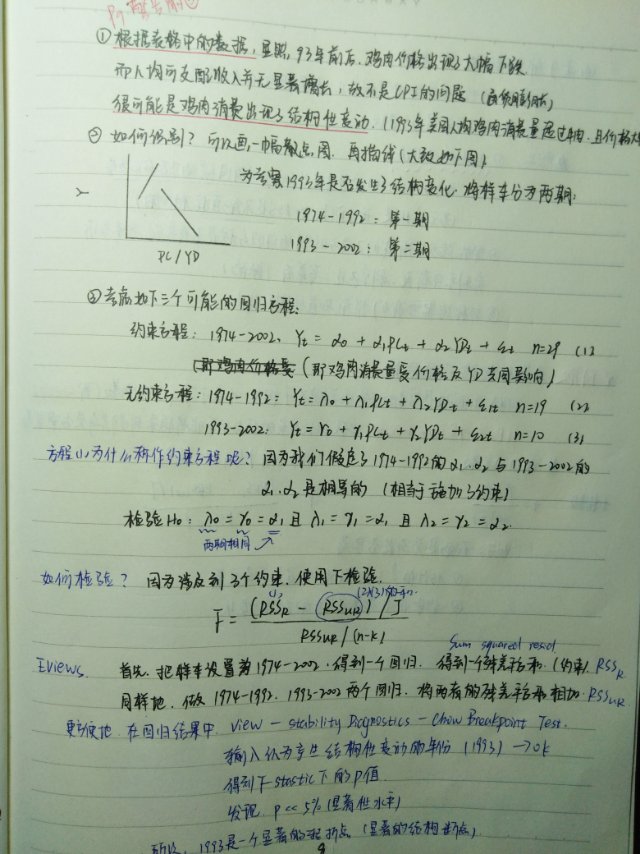 ① 根据表格中的数据，显照，93年前后，鸡肉价格出现了大幅下跌
而人均可支配收入并无显著增长，故不是CPI的问题（通货膨胀）
很可能是鸡肉消费出现了结构性变动.（1993年美国人均鸡肉消费量超过牛肉，且价格
② 如何识别？可以画一幅散点图，再描线（大致如下图）
为考察1993年是否发生了结构变化，将样本分为两期：
Y
1974-1992：第一期
1993-2002：第二期
PC/YD
③ 考虑如下三个可能的回归方程：
约束方程：1974-2002. Yt = α0 + α1PCt + α2YDt + εt n=29 (1)
（即鸡肉消费量受价格及YD共同影响）
无约束方程：1974-1992：Yt = λ0 + λ1PCt + λ2YDt + ε1t n=19 (2)
1993-2002：Yt = γ0 + γ1PCt + γ2YDt + ε2t n=10 (3)
方程(1)为什么称作约束方程呢？因为我们假定了1974-1992的α1.α2与1993-2002的
α1.α2是相等的（相当于施加了约束）
检验H0：λ0 = γ0 = α1 且 λ1 = γ1 = α1 且 λ2 = γ2 = α2
两期相同
如何检验？因为涉及到3个约束，使用F检验.
F = (RSSR - RSSUR) / J
RSSUR / (n-k)
Sum squared resid
Eviews 首先，把样本设置为1974-2002，得到一个回归，得到一个残差平方和（约束）RSSR
同样地，做1974-1992，1993-2002两个回归，将两者的残差平方和相加 RSSUR
更方便地，在回归结果中 View - Stability Diagnostics - Chow Breakpoint Test.
输入认为产生结构性变动的年份（1993）→ ok
得到F-stastic下的p值
发现 P << 5%（显著性水平）
所以，1993是一个显著的转折点（显著的结构断点）